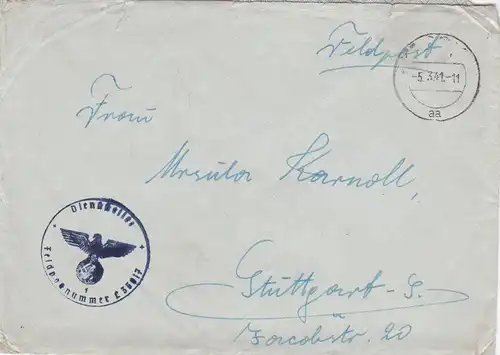 Feldpost.
-5.3.41.-11
aa
Frau
Ursula Karnoll,
Stuttgart-S.
Jacobstr. 20
Dienststelle
Feldpostnummer